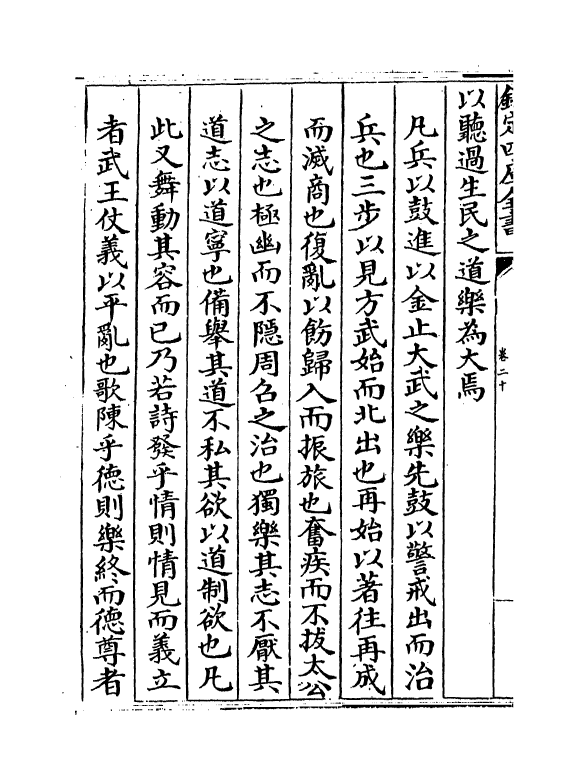 欽定四庫全書
卷二十
以聽過生民之道樂為大焉
凡兵以鼓進以金止大武之樂先鼓以警戒出而治
兵也三步以見方武始而北出也再始以著往再成
而滅商也復亂以飭歸入而振旅也奮疾而不拔太公
之志也極幽而不隱周召之治也獨樂其志不厭其
道志以道寧也備舉其道不私其欲以道制欲也凡
此又舞動其容而已乃若詩發乎情則情見而義立
者武王仗義以平亂也歌陳乎德則樂終而德尊者